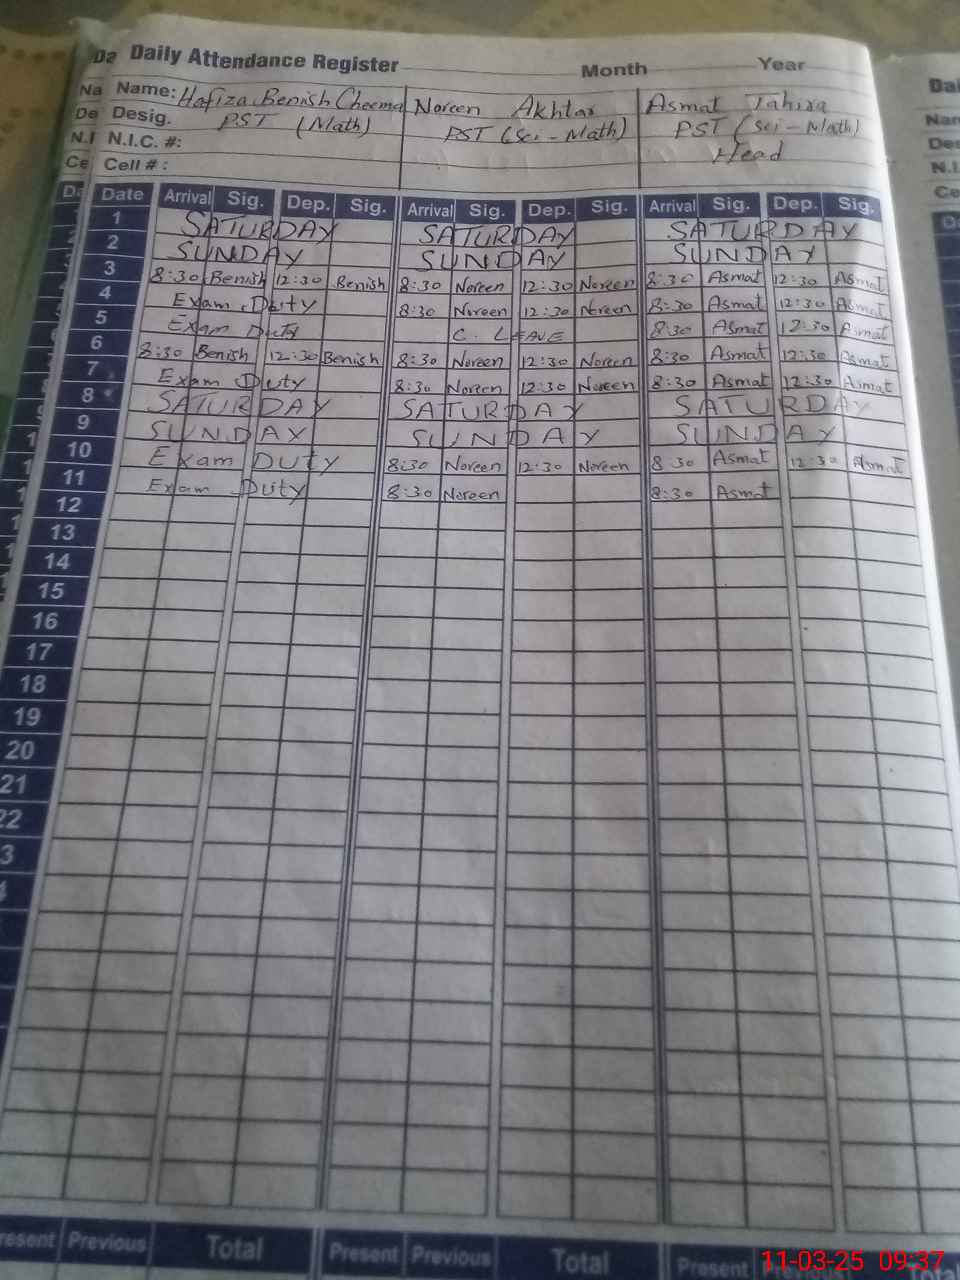 Da Daily Attendance Register Month Year Dai
Na Name: Hafiza Benish Cheema Noreen Akhtar Asmat Tahira Nam
De Desig. PST (Math) PST (Sci-Math) PST (Sci-Math) Des
N.I N.I.C. #: Head N.I.
Ce Cell # : Ce
Da Date Arrival Sig. Dep. Sig. Arrival Sig. Dep. Sig. Arrival Sig. Dep. Sig.
1 SATURDAY SATURDAY SATURDAY
2 SUNDAY SUNDAY SUNDAY
3 8:30 Benish 12:30 Benish 8:30 Noreen 12:30 Noreen 8:30 Asmat 12:30 Asmat
4 Exam Duty 8:30 Noreen 12:30 Noreen 8:30 Asmat 12:30 Asmat
5 Exam Duty C. LEAVE 8:30 Asmat 12:30 Asmat
6 8:30 Benish 12:30 Benish 8:30 Noreen 12:30 Noreen 8:30 Asmat 12:30 Asmat
7 Exam Duty 8:30 Noreen 12:30 Noreen 8:30 Asmat 12:30 Asmat
8 SATURDAY SATURDAY SATURDAY
9 SUNDAY SUNDAY SUNDAY
10 Exam DUTY 8:30 Noreen 12:30 Noreen 8:30 Asmat 12:30 Asmat
11 Exam Duty 8:30 Noreen 8:30 Asmat
12
13
14
15
16
17
18
19
20
21
22
3
resent Previous Total Present Previous Total Present
11-03-25 09:37